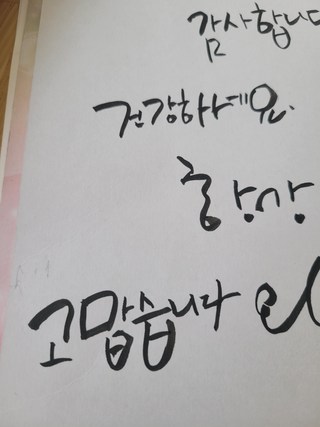 감사합니다
건강하세요.
항상
고맙습니다